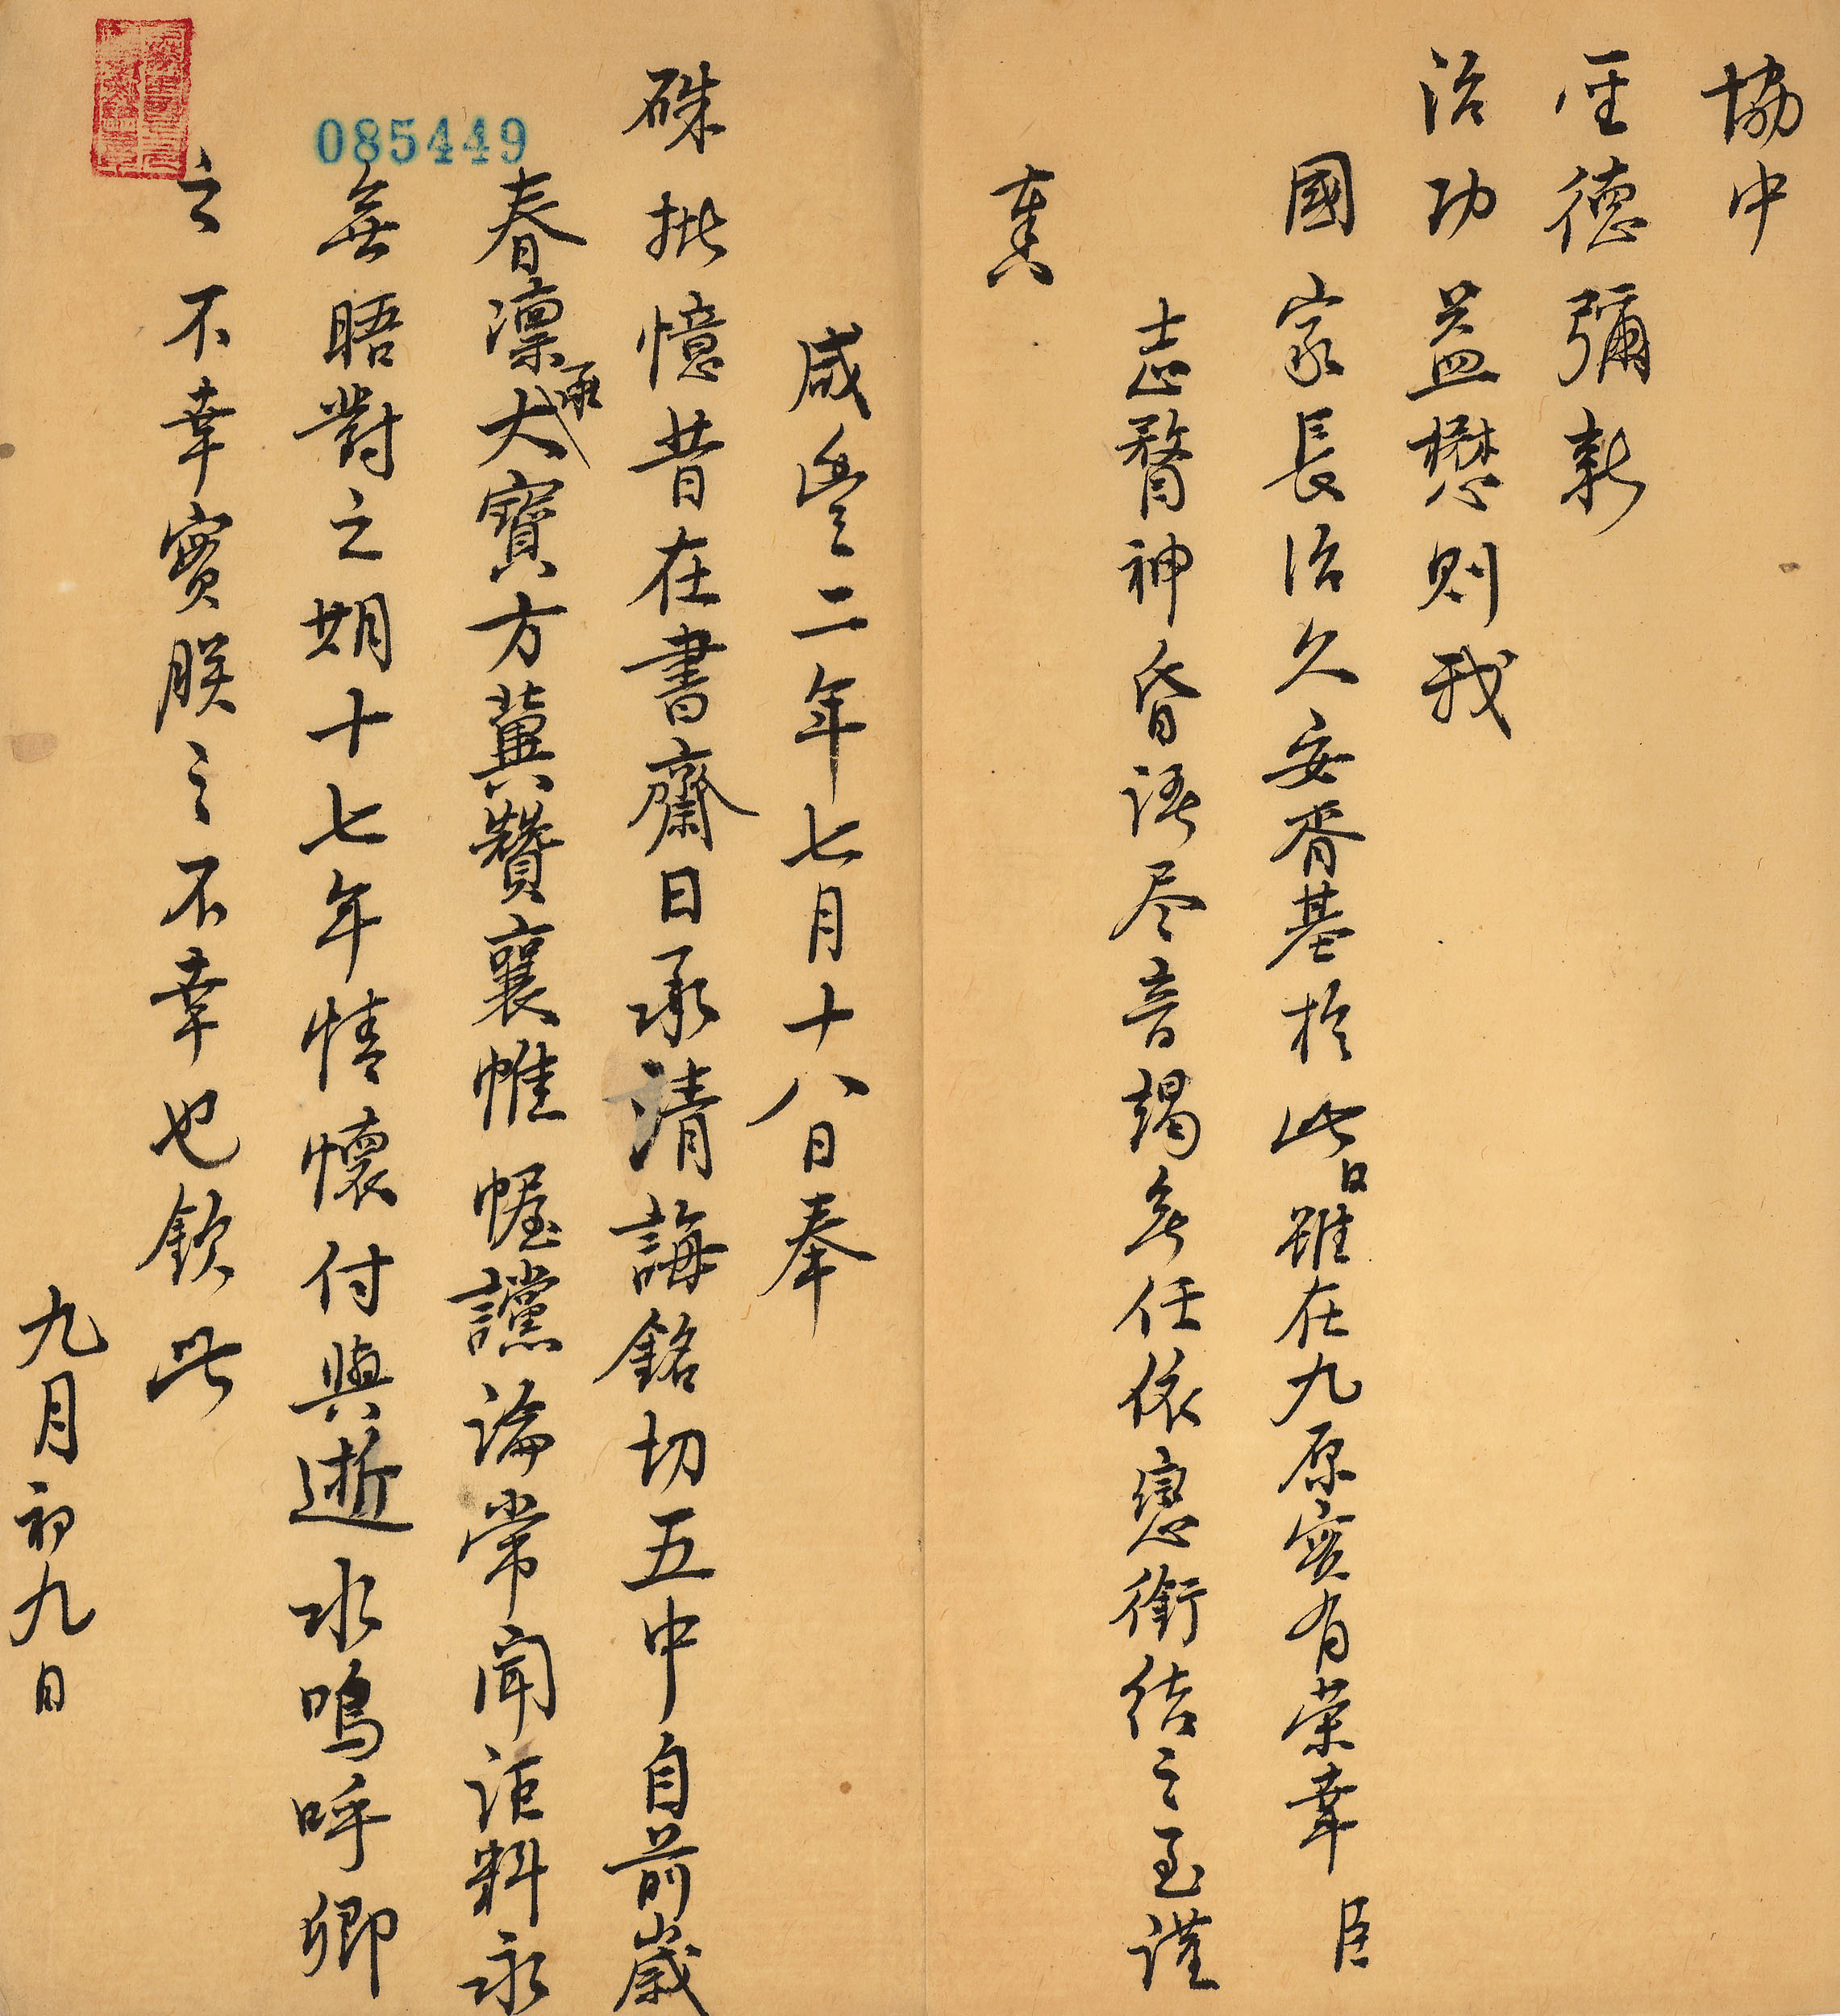 協中
聖德彌新
治功益懋則我
國家長治久安胥基於此日雖在九原實有榮幸臣
志瞀神昏語尽音竭無任依戀銜結之至謹
奏
咸豐二年七月十八日奉
硃批憶昔在書齋日承清誨銘切五中自前歲
春凜承大寶方冀贊襄帷幄讜論常聞詎料永
無晤對之期十七年情懷付與逝水嗚呼卿
之不幸實朕之不幸也欽此
九月初九日
085449